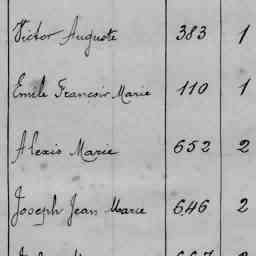 Victor Auguste 383 1
Emile Francois Marie 110 1
Alexis Marie 652 2
Joseph Jean Marie 646 2